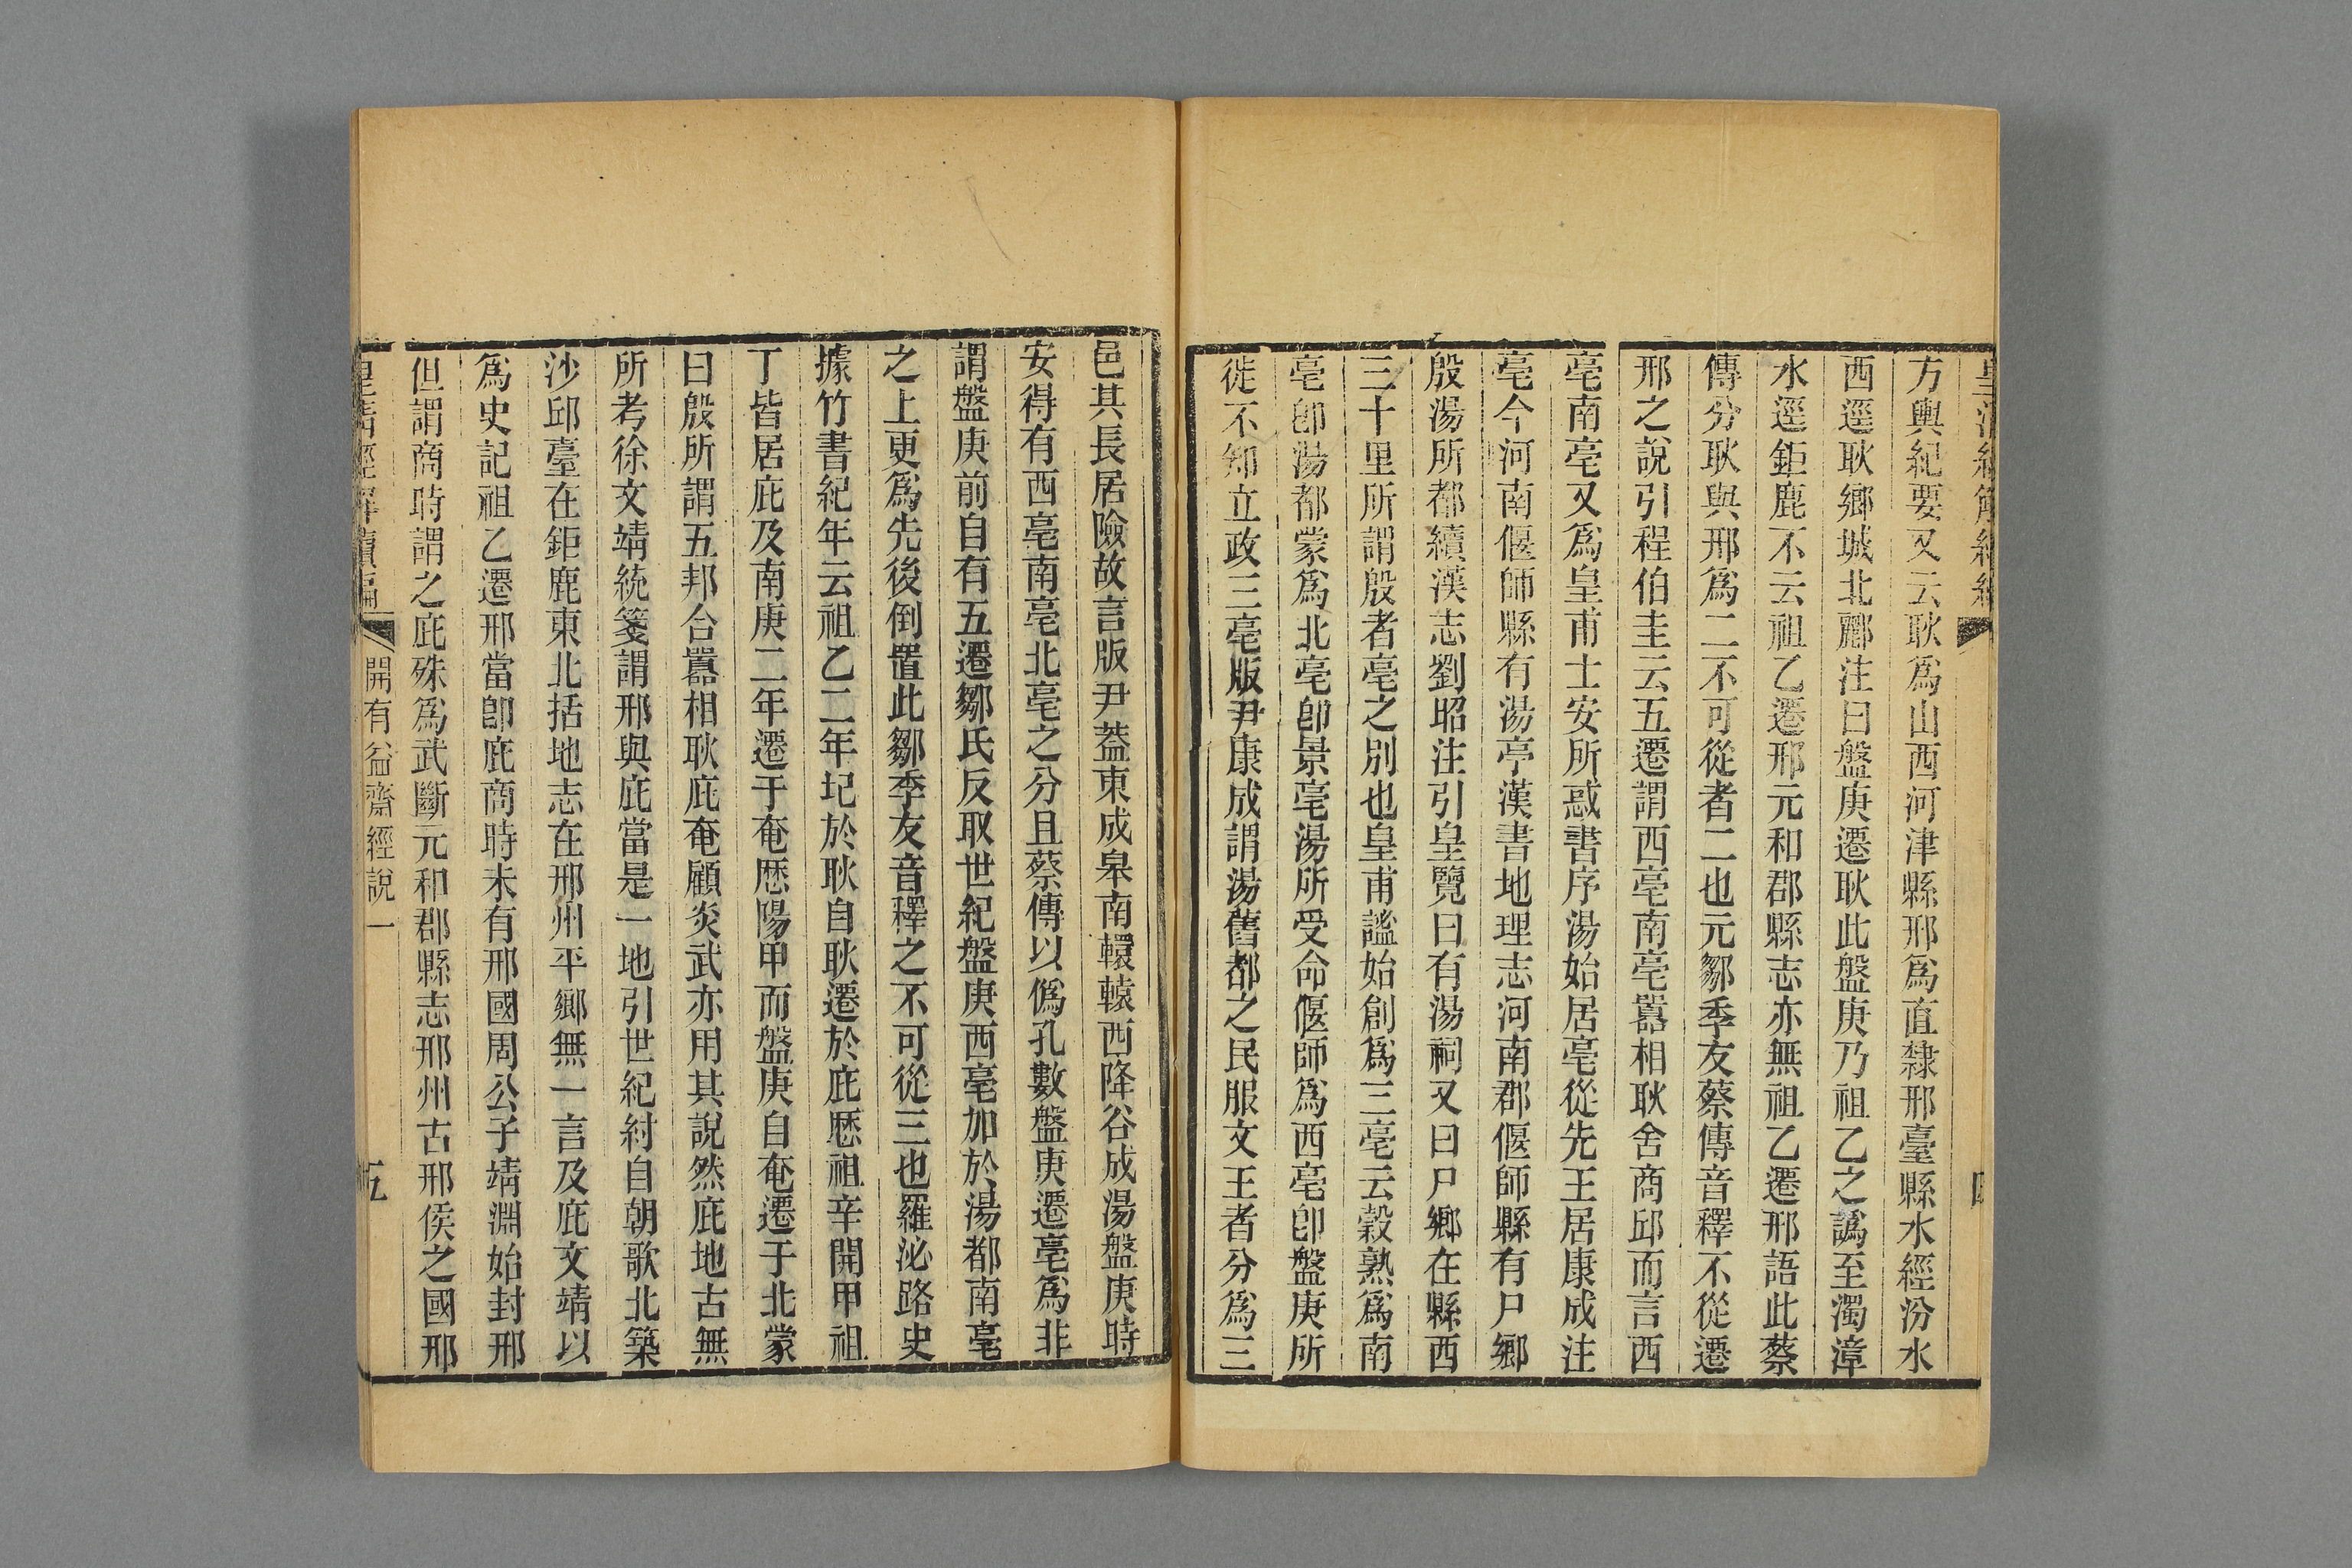 方輿紀要又云耿爲山西河津縣邢爲直隸邢臺縣水經汾水
西逕耿鄉城北酈注曰盤庚遷耿此盤庚乃祖乙之譌至濁漳
水逕鉅鹿不云祖乙遷邢元和郡縣志亦無祖乙遷邢語此蔡
傳分耿與邢爲二不可從者二也元鄒季友蔡傳音釋不從遷
邢之說引程伯圭云五遷謂西亳南亳囂相耿舍商邱而言西
亳南亳又爲皇甫士安所惑書序湯始居亳從先王居康成注
亳今河南偃師縣有湯亭漢書地理志河南郡偃師縣有尸鄉
殷湯所都續漢志劉昭注引皇覽曰有湯祠又曰尸鄉在縣西
三十里所謂殷者亳之別也皇甫謐始創爲三亳云穀熟爲南
亳卽湯都蒙爲北亳卽景亳湯所受命偃師爲西亳卽盤庚所
徙不知立政三亳版尹康成謂湯舊都之民服文王者分爲三
邑其長居險故言版尹葢東成皋南轘轅西降谷成湯盤庚時
安得有西亳南亳北亳之分且蔡傳以僞孔數盤庚遷亳爲非
謂盤庚前自有五遷鄒氏反取世紀盤庚西亳加於湯都南亳
之上更爲先後倒置此鄒季友音釋之不可從三也羅泌路史
據竹書紀年云祖乙二年圮於耿自耿遷於庇歷祖辛開甲祖
丁皆居庇及南庚二年遷于奄歷陽甲而盤庚自奄遷于北蒙
曰殷所謂五邦合囂相耿庇奄顧炎武亦用其說然庇地古無
所考徐文靖統箋謂邢與庇當是一地引世紀紂自朝歌北築
沙邱臺在鉅鹿東北括地志在邢州平鄉無一言及庇文靖以
爲史記祖乙遷邢當卽庇商時未有邢國周公子靖淵始封邢
但謂商時謂之庇殊爲武斷元和郡縣志邢州古邢侯之國邢
皇清經解續編
開有益齋經說一
五